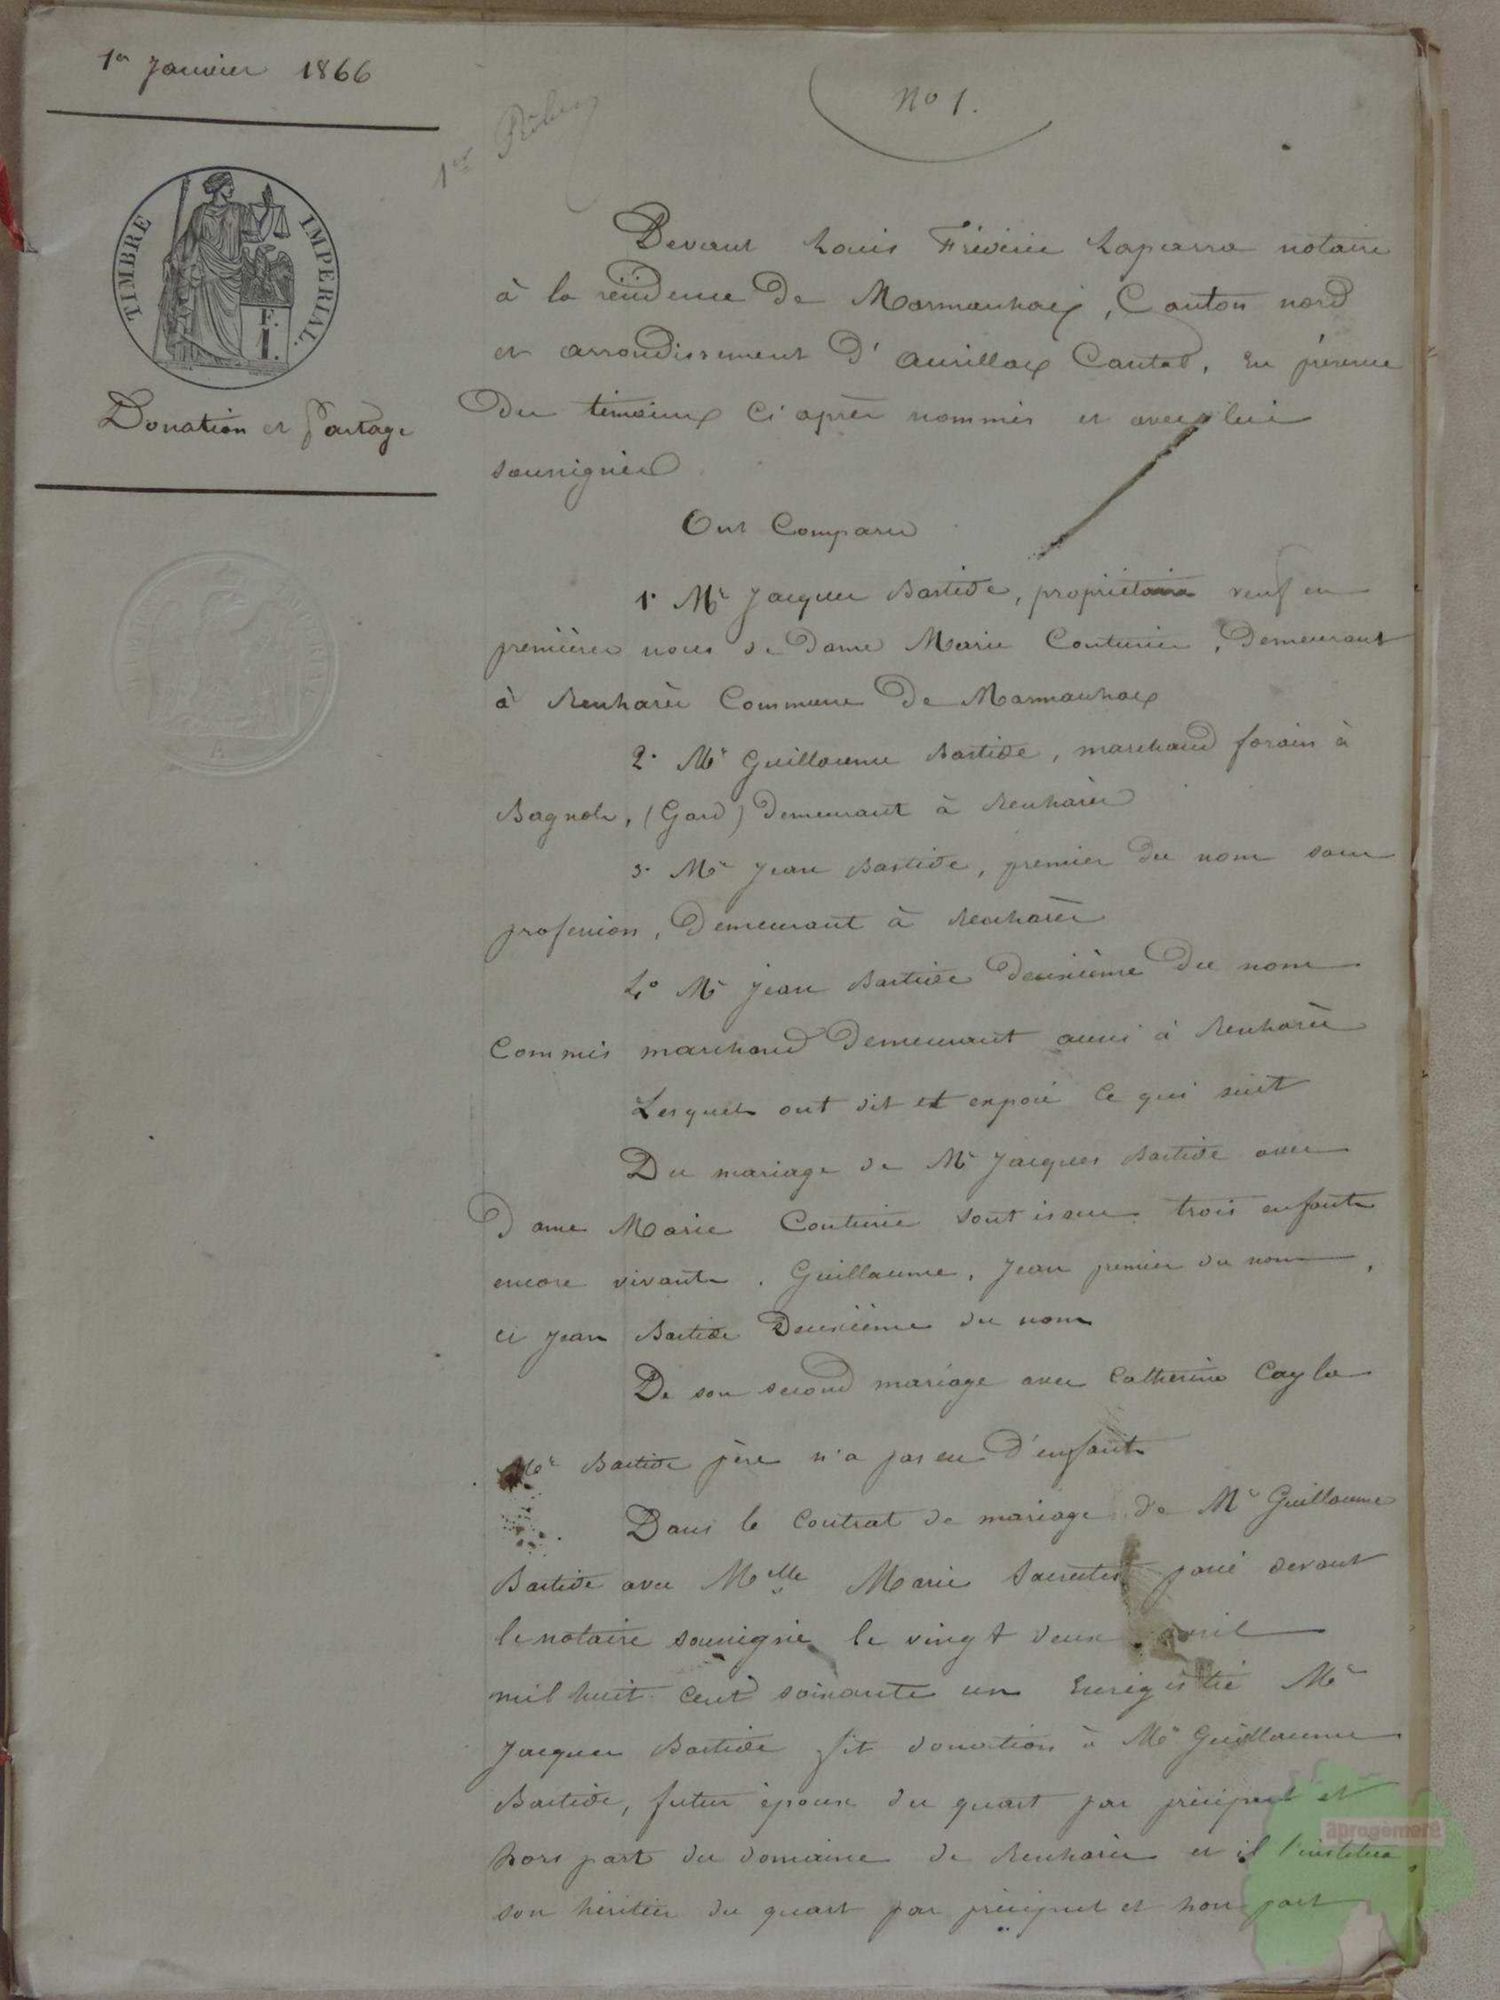 1er Janvier 1866
No 1.
1er Rôle
TIMBRE IMPERIAL.
F.
1.
Donation et Partage
Devant Louis Frédéric Laparra notaire
à la résidence de Marmanhac, Canton nord
et arrondissement d'Aurillac Cantal, En présence
des témoins ci après nommés et avec lui
soussignés
Ont Comparu
1° Mr Jacques Bastide, propriétaire veuf en
premières noces de Dame Marie Couturier, Demeurant
à Reuharès Commune de Marmanhac
2° Mr Guillaume Bastide, marchand forain à
Bagnols, (Gard) demeurant à Reuharès
3° Mr Jean Bastide, premier du nom sans
profession, Demeurant à Reuharès
4° Mr Jean Bastide deuxième du nom
Commis marchand demeurant aussi à Reuharès
Lesquels ont dit et exposé ce qui suit
Du mariage de Mr Jacques Bastide avec
Dame Marie Couturie sont issus trois enfants
encore vivants. Guillaume, Jean premier du nom,
et Jean Bastide Deuxième du nom
De son second mariage avec Catherine Cayla
Mr Bastide père n'a pas eu d'enfants
Dans le Contrat de mariage de Mr Guillaume
Bastide avec Melle Marie passé devant
le notaire soussigné le vingt deux avril
mil huit cent soixante un Enregistré Mr
Jacques Bastide fit donation à Mr Guillaume
Bastide, futur époux du quart par préciput et
hors part du domaine de Reuharès et il l'institua
son héritier du quart par préciput et hors part
aprogemere